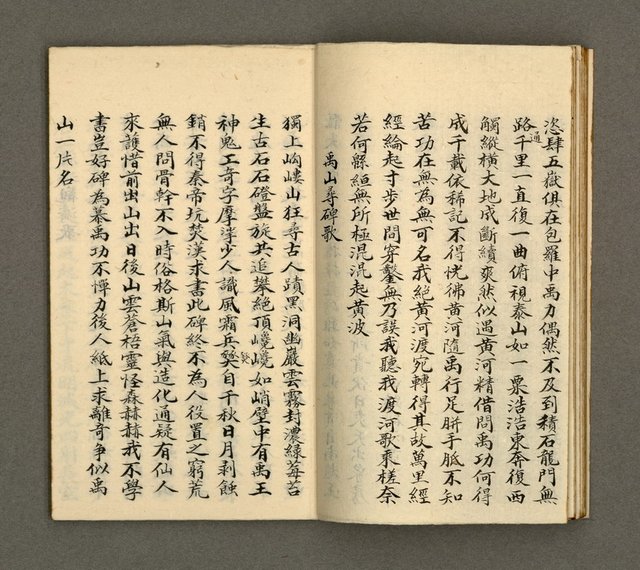 恣肆五嶽俱在包羅中禹力偶然不及到積石龍門無
通
路千里一直復一曲俯視泰山如一粟浩浩東奔復西
觸縱橫大地成斷續爽然似遇黄河精借問禹功何得
成千載依稀記不得恍彿黄河隨禹行足胼手胝不知
苦功在無為無可名我絕黄河渡宛轉得其故萬里經
經綸起寸步世間穿鑿無乃誤我聽我渡河歌乘槎奈
若何緜絙無所極混混起黄波
禹山尋碑歌
獨上岣嶁山狂尋古人蹟黑洞幽巖雲霧封濃綠莓苔
生古石石磴盤旋共追攀絕頂巉巉如峭壁中有禹王
神鬼工奇字摩挲少人識風霜兵燹自千秋日月剥蝕
銷不得秦帝坑焚漢求書此碑終不為人役置之窮荒
無人問骨幹不入時俗格斯山氣與造化通疑有仙人
來護惜前出山出日後山雲蒼梧靈怪森赫赫我不學
書豈好碑為慕禹功不憚力後人紙上求離奇争似禹
山一片名